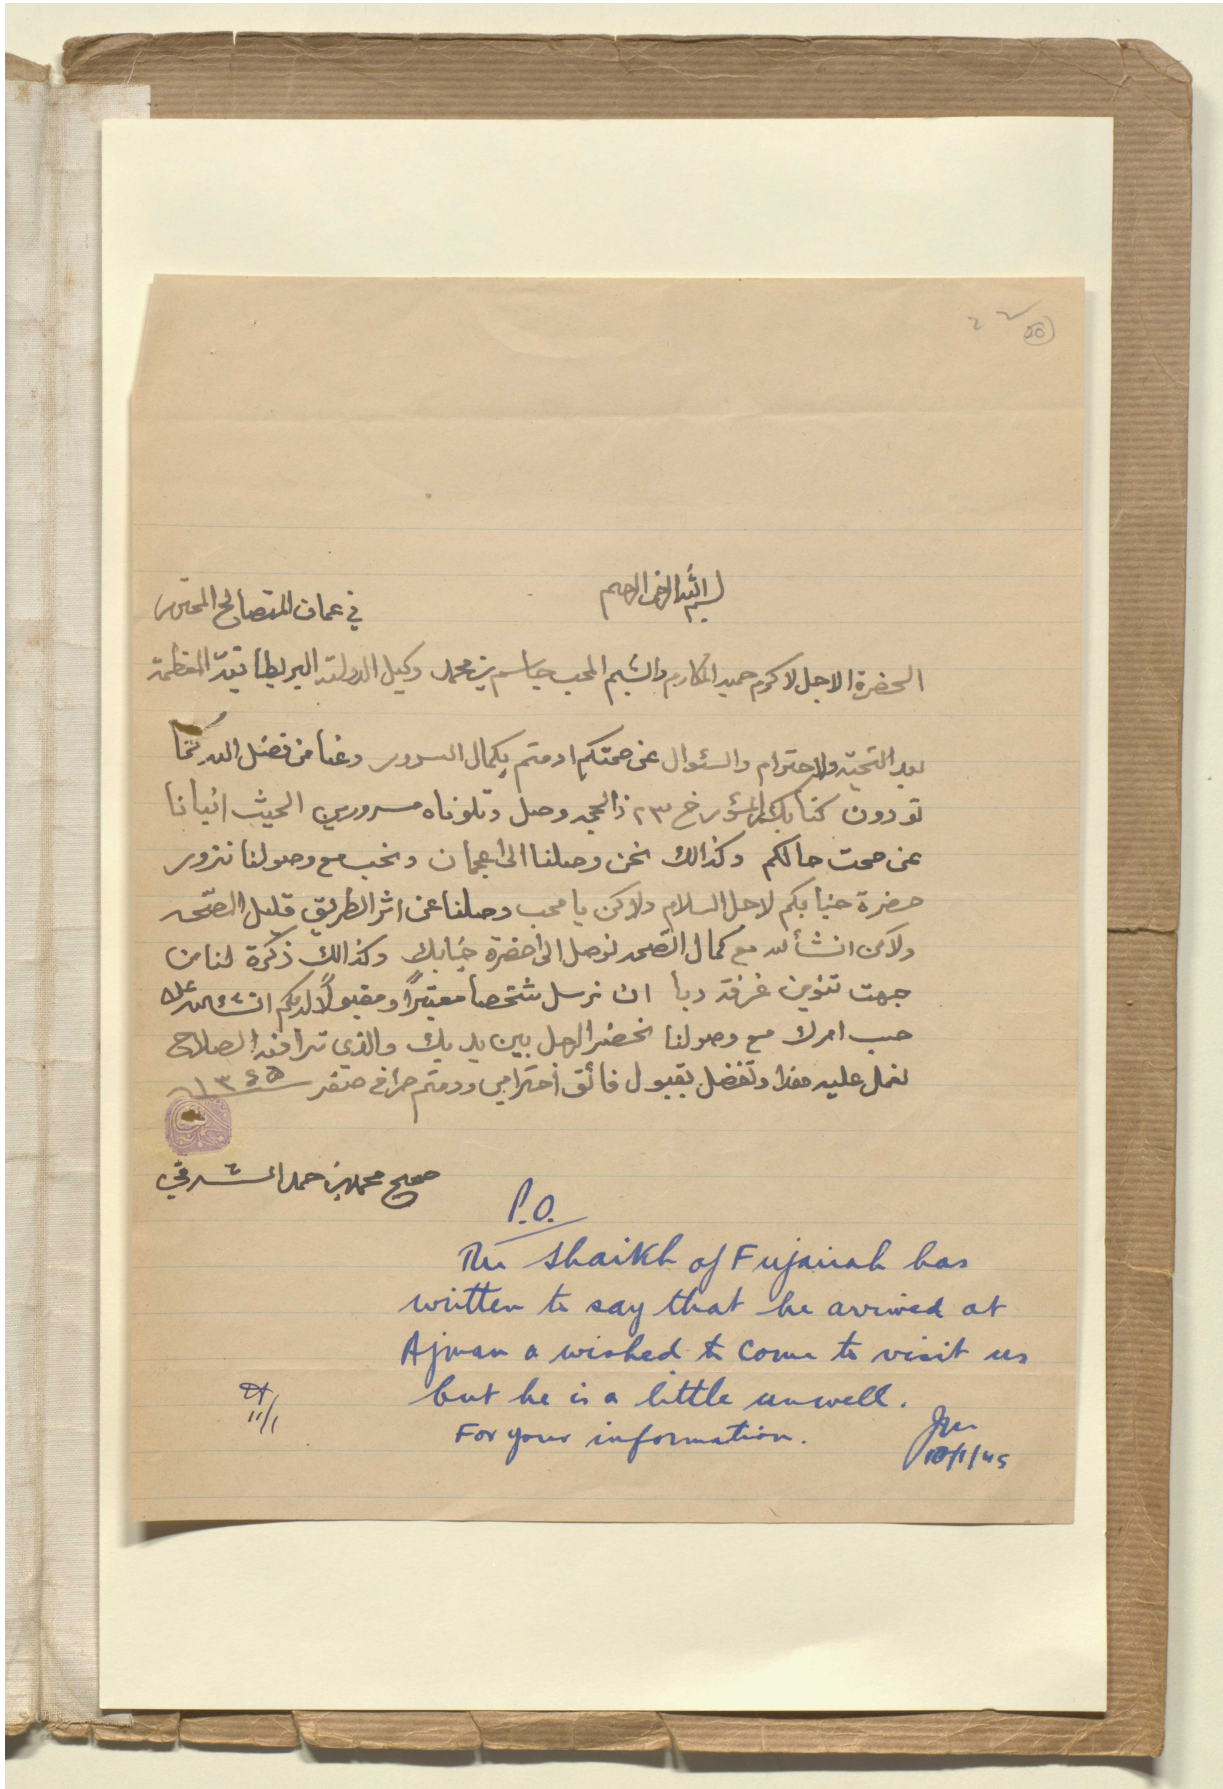 بسم الله الرحمن الرحيم
في عمان المتصالح المحترم
الحضرة الاجل لاكرم حميد المكارم والشيم المحب جاسم بن محمد وكيل الدولته البريطانيّة المعظمة
بعد التحيّه ولاحترام والسئوال عن صحتكم ادمتم بكمال السرور وعنا من فضل الله كما
تودون كتابك المؤرخ ٢٣ ذالحجه وصل وتلوناه مسرورين الحيث انبانا
عن صحت حالكم وكذالك نحن وصلنا الى اعجمان ونحب مع وصولنا نزور
حضرة جنابكم لاجل السلام ولاكن يا محب وصلنا عن اثر الطريق قليل الصّحه
ولاكن انشألله مع كمال الصّحه نوصل الى حضرة جنابك وكذالك ذكرة لنا من
جهت تنوين غرفة دبا ان نرسل شخصاً معتبراً ومقبولاً لديكم انشالله على
حسب امرك مع وصولنا نحضر الرجل بين يديك والذي تراه فيه الصلاح
نعمل عليه هذا وتفضل بقبول فائق احترامي ودمتم حرر في صفر ١٣٦٥
صحيح محمد بن حمد الشرقي
P.O.
The Shaikh of Fujairah has
written to say that he arrived at
Ajman & wished to come to visit us
but he is a little unwell.
For your information.
10/1/45
11/1